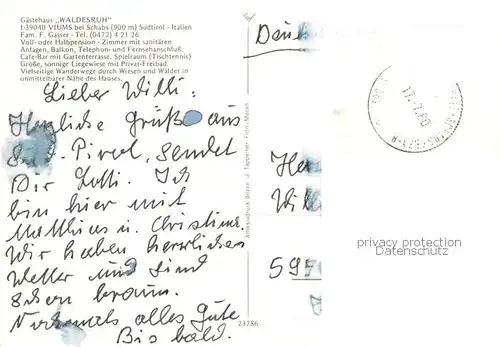 Gästehaus „WALDESRUH"
I-39040 VIUMS bei Schabs (900 m) Südtirol - Italien
Fam. F. Gasser - Tel. (0472) 4 21 26
Voll- oder Halbpension - Zimmer mit sanitären
Anlagen, Balkon, Telephon- und Fernsehanschluß.
Cafe-Bar mit Gartenterrasse. Spielraum (Tischtennis)
Große, sonnige Liegewiese mit Privat-Freibad.
Vielseitige Wanderwege durch Wiesen und Wälder in
unmittelbarer Nähe des Hauses.
Lieber Willi:
Herzliche Grüße aus
Süd-Tirol, sendet
Dir Lotti. Ich
bin hier mit
Matthias u. Christine.
Wir haben herrliches
Wetter und sind
schon braun.
Nochmals alles Gute
Bis bald.
Her
Wil
597
17.7.80
23786
privacy protection
Datenschutz